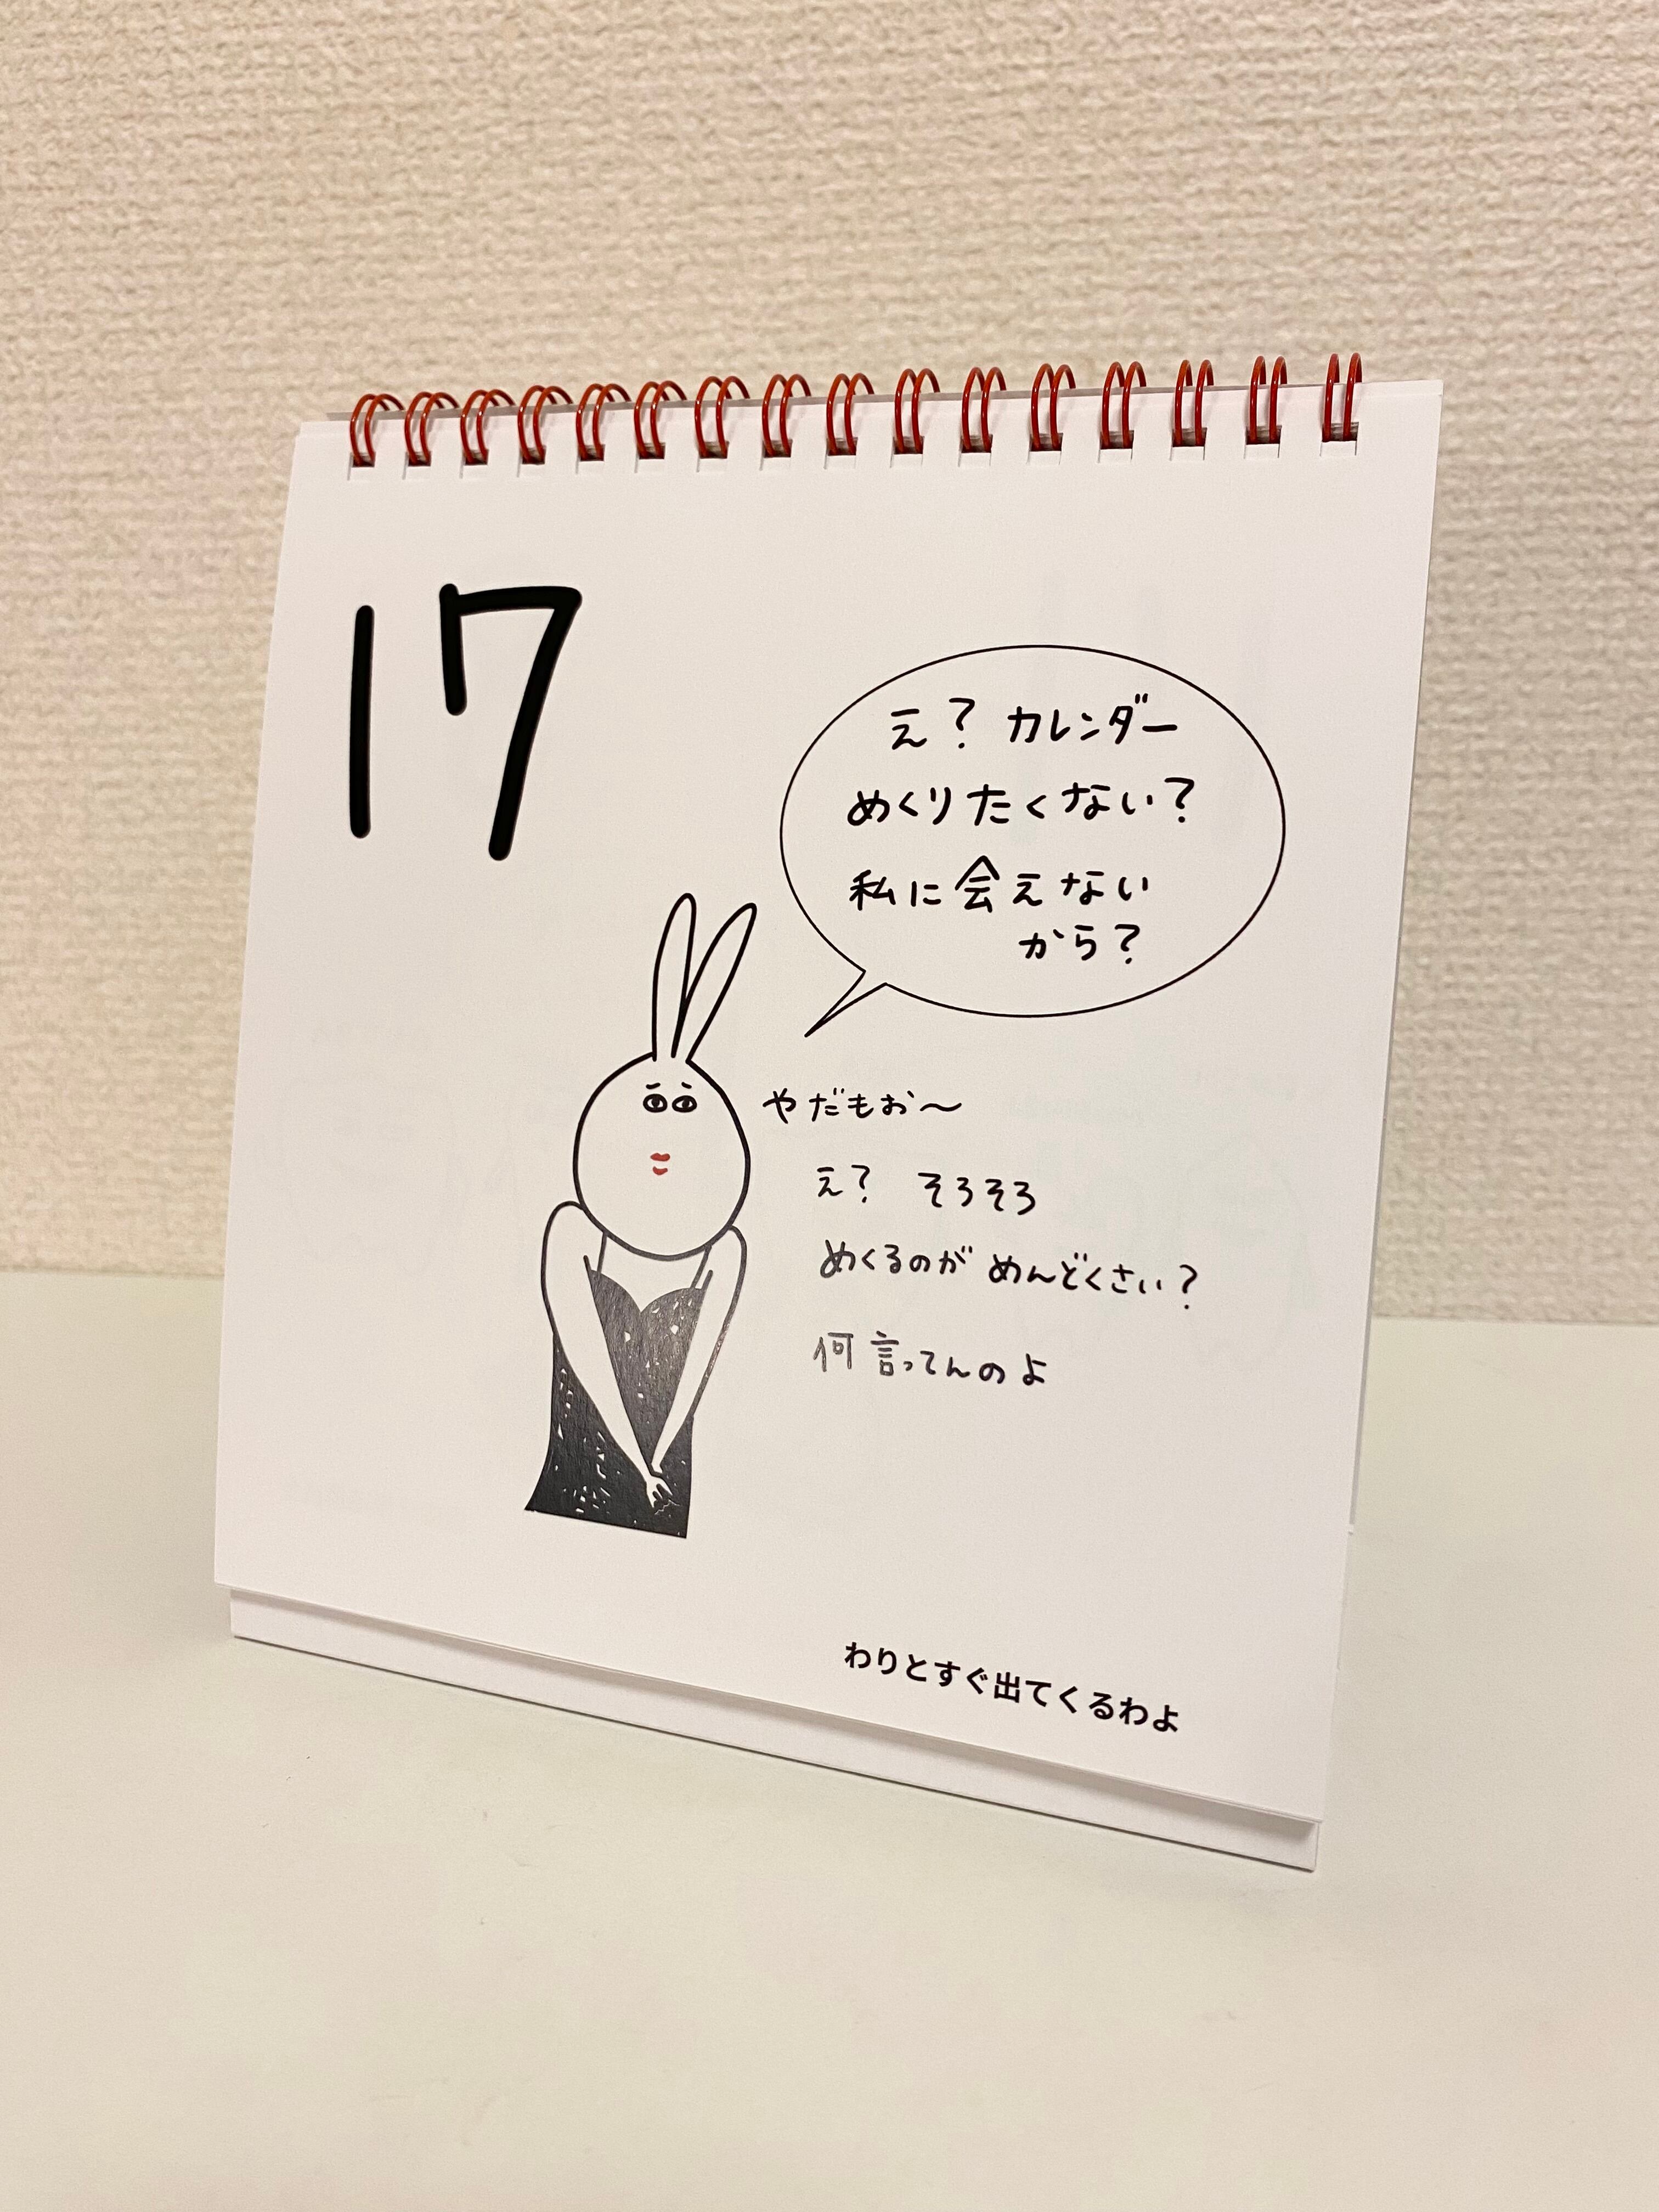 17
え？ カレンダー
めくりたくない？
私に会えない
から？
やだもお〜
え？ そろそろ
めくるのが めんどくさい？
何言ってんのよ
わりとすぐ出てくるわよ